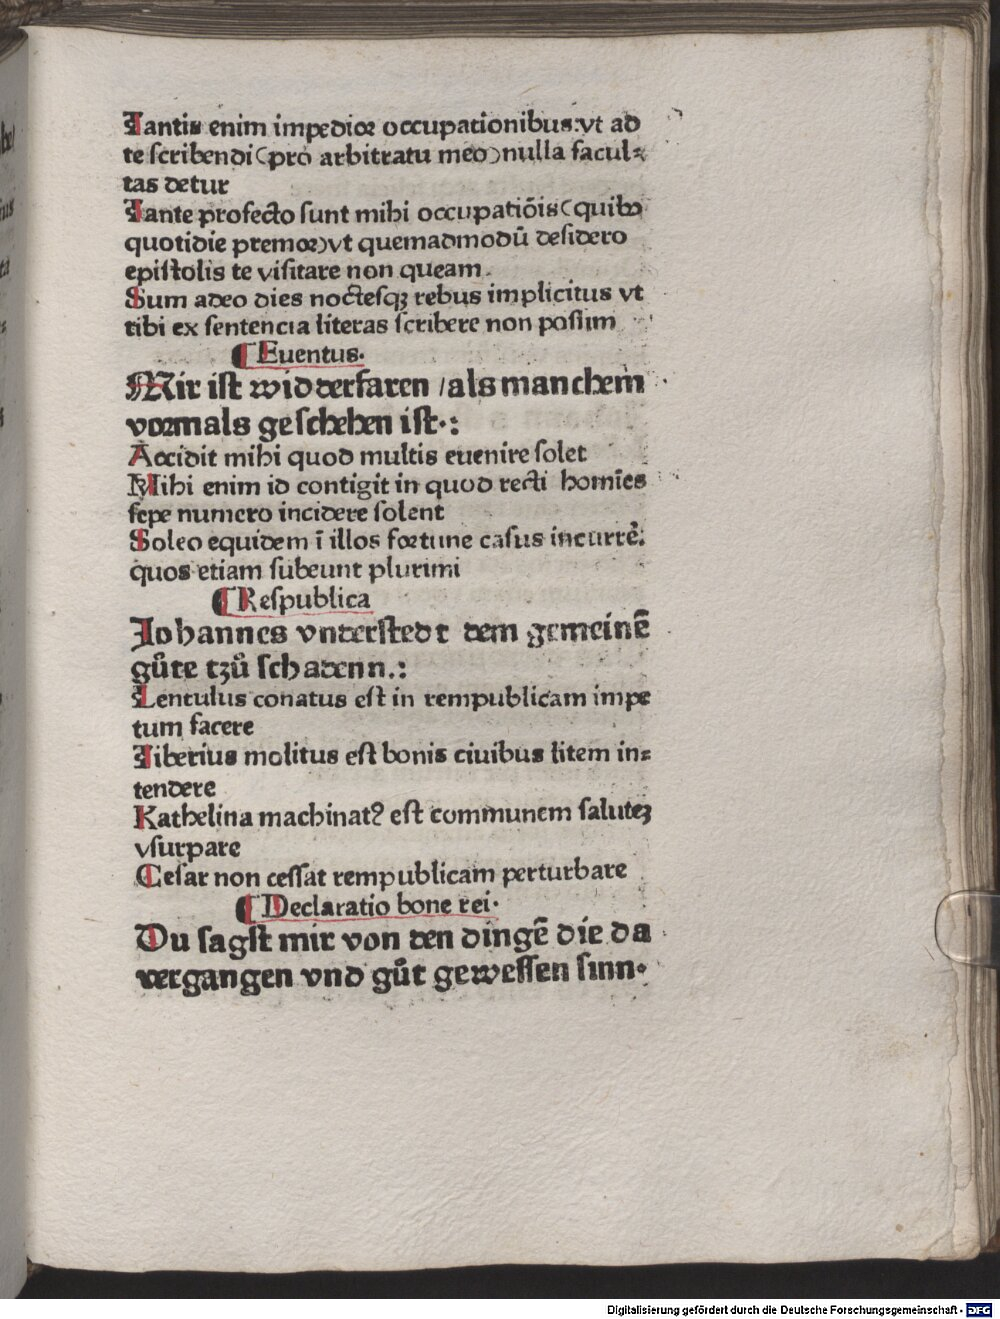 Tantis enim impedior occupationibus:vt ad
te scribendi(pro arbitratu meo)nulla facul⸗
tas detur
Tante profecto sunt mihi occupatiōis(quibꝰ
quotidie premor)vt quemadmodū desidero
epistolis te visitare non queam.
Sum adeo dies noctesqꝫ rebus implicitus vt
tibi ex sentencia literas scribere non possim
¶ Euentus.
Mir ist widderfaren /als manchem
vormals geschehen ist.:
Accidit mihi quod multis euenire solet
Mihi enim id contigit in quod recti homīes
sepe numero incidere solent
Soleo equidem ī illos fortune casus incurrē.
quos etiam subeunt plurimi
¶ Respublica
Johannes vnderstedt dem gemeinē
gůte tzů schadenn.:
Lentulus conatus est in rempublicam impe
tum facere
Tiberius molitus est bonis ciuibus litem in⸗
tendere
Kathelina machinatꝰ est communem saluteꝫ
vsurpare
Cesar non cessat rempublicam perturbare
¶ Declaratio bone rei.
Du sagst mir von den dingē die da
vergangen vnd gůt gewessen sinn.
Digitalisierung gefördert durch die Deutsche Forschungsgemeinschaft - DFG